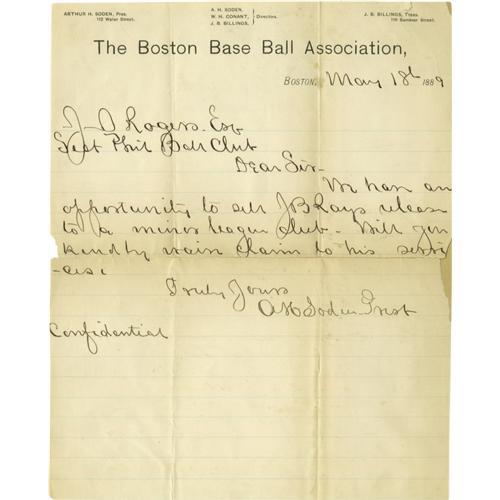 ARTHUR H. SODEN, Pres.
112 Water Street.
A. H. SODEN,
W. H. CONANT,
J. B. BILLINGS,
Directors.
J. B. BILLINGS, Treas.
The Boston Base Ball Association,
BOSTON, May 18th 1889
J. I. Rogers. Esq
Sect Phil Ball Club
Dear Sir-
We have an
opportunity to sell J B Rays release
to a minor league club - Will you
kindly waive claim to his servi
-ces.
Truly Yours
A H Soden Prest
Confidential